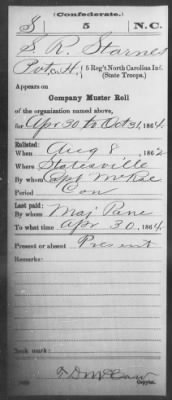 (Confederate.)
S 5 N.C.
S. R. Starnes
Pvt, Co. H, 5 Reg't North Carolina Inf.
(State Troops.)
Appears on
Company Muster Roll
of the organization named above,
for Apr 30 to Oct 31, 1864.
Enlisted:
When Aug 8, 1862
Where Statesville
By whom Capt McRae
Period Con
Last paid:
By whom Maj Pane
To what time Apr 30, 1864
Present or absent Present
Remarks:
Book mark:
Copyist.